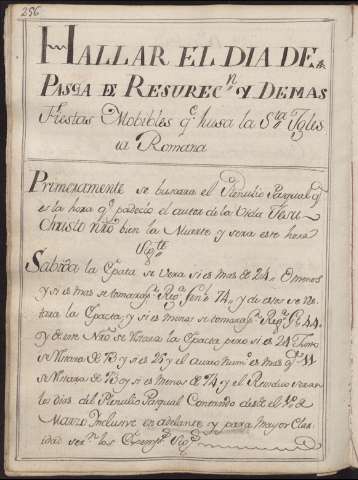 256
HALLAR EL DIA DE
PASQA DE RESURECn. Y DEMAS
Fiestas Mobibles q. husa la Sta. Igles
ia Romana
Primeramente se buscara el Plenilu[n]io Pasqual q.
es la hora q. padecio el autor de la Vida Jesu-
christo Nro bien la Muerte y sera este hera
Sigte.
Sabida la Epacta se vera si es mas de 24. O menos
y si es mas se tomara pr. Regla Gen. 74. y de estos se Res
tara la Epacta, y si es menos se tomara pr. Regla 44
y de este se Restara la Epacta pero si es 24 Tam.
se Restara de 73 y si es 25 y el aureo num.o es mas q. 11
se Restara de 73 o si es menos de 74 y el Residuo seran
los dias del Plenilunio Pasqual Contando desde el 1o. de
Marzo Inclusive en adelante y para Mayor Clari
dad sean los Exemp.s Sig.s